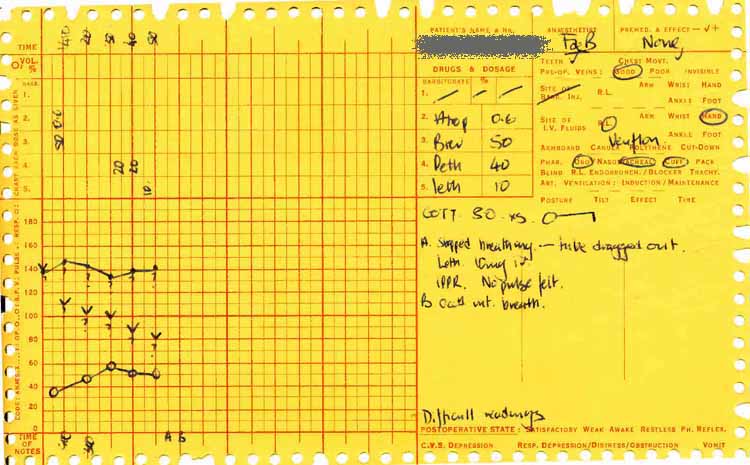 TIME 40 20 30 40 50
VOL.
O! %
BASE.
1.
2.
3.
4.
5.
50 0.6
20 20
10
180
160
140
120
100
80
60
40
20
0
TIME OF NOTES
A B
PATIENT'S NAME & No.
DRUGS & DOSAGE
BARBITURATE %
1.
2. Atrop 0.6
3. Brev 50
4. Peth 40
5. Leth 10
ANAESTHETIST PREMED. & EFFECT — √ +
None
TEETH CHEST MOVT.
PRE-OP. VEINS: GOOD POOR INVISIBLE
SITE OF BARB. INJ. R.L. ARM WRIST HAND
ANKLE FOOT
SITE OF I.V. FLUIDS R.L. ARM WRIST HAND
ANKLE FOOT
Venflon
ARMBOARD CANULA POLYTHENE CUT-DOWN
PHAR. ORO NASO TRACHEAL CUFF PACK
BLIND R.L. ENDOBRONCH./BLOCKER TRACHY.
ART. VENTILATION: INDUCTION/MAINTENANCE
POSTURE TILT EFFECT TIME
COTT. 30. xs.
A. Stopped breathing — tube dragged out.
Leth. 10mg iv
IPPR. No pulse felt.
B. int. breath.
Difficult readings
POSTOPERATIVE STATE: SATISFACTORY WEAK AWAKE RESTLESS PH. REFLEX.
C.V.S. DEPRESSION RESP. DEPRESSION/DISTRESS/OBSTRUCTION VOMIT